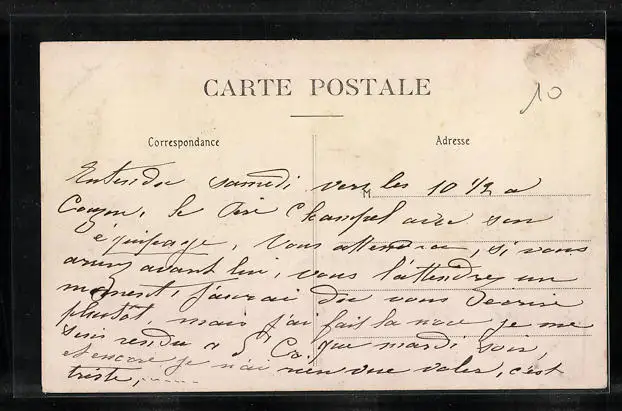 CARTE POSTALE
10
Correspondance
Adresse
M
Entendu samedi vers les 10 1/2 a
Couzon, le Père Champel avec son
équipage, Vous attendra, si vous
arrivez avant lui, vous l'attendrez un
moment, j'aurai du vous écrire
plutot mais j'ai fait la noce je me
suis rendu a St que mardi soir
et encore je n'ai rien vue voler, c'est
triste,......